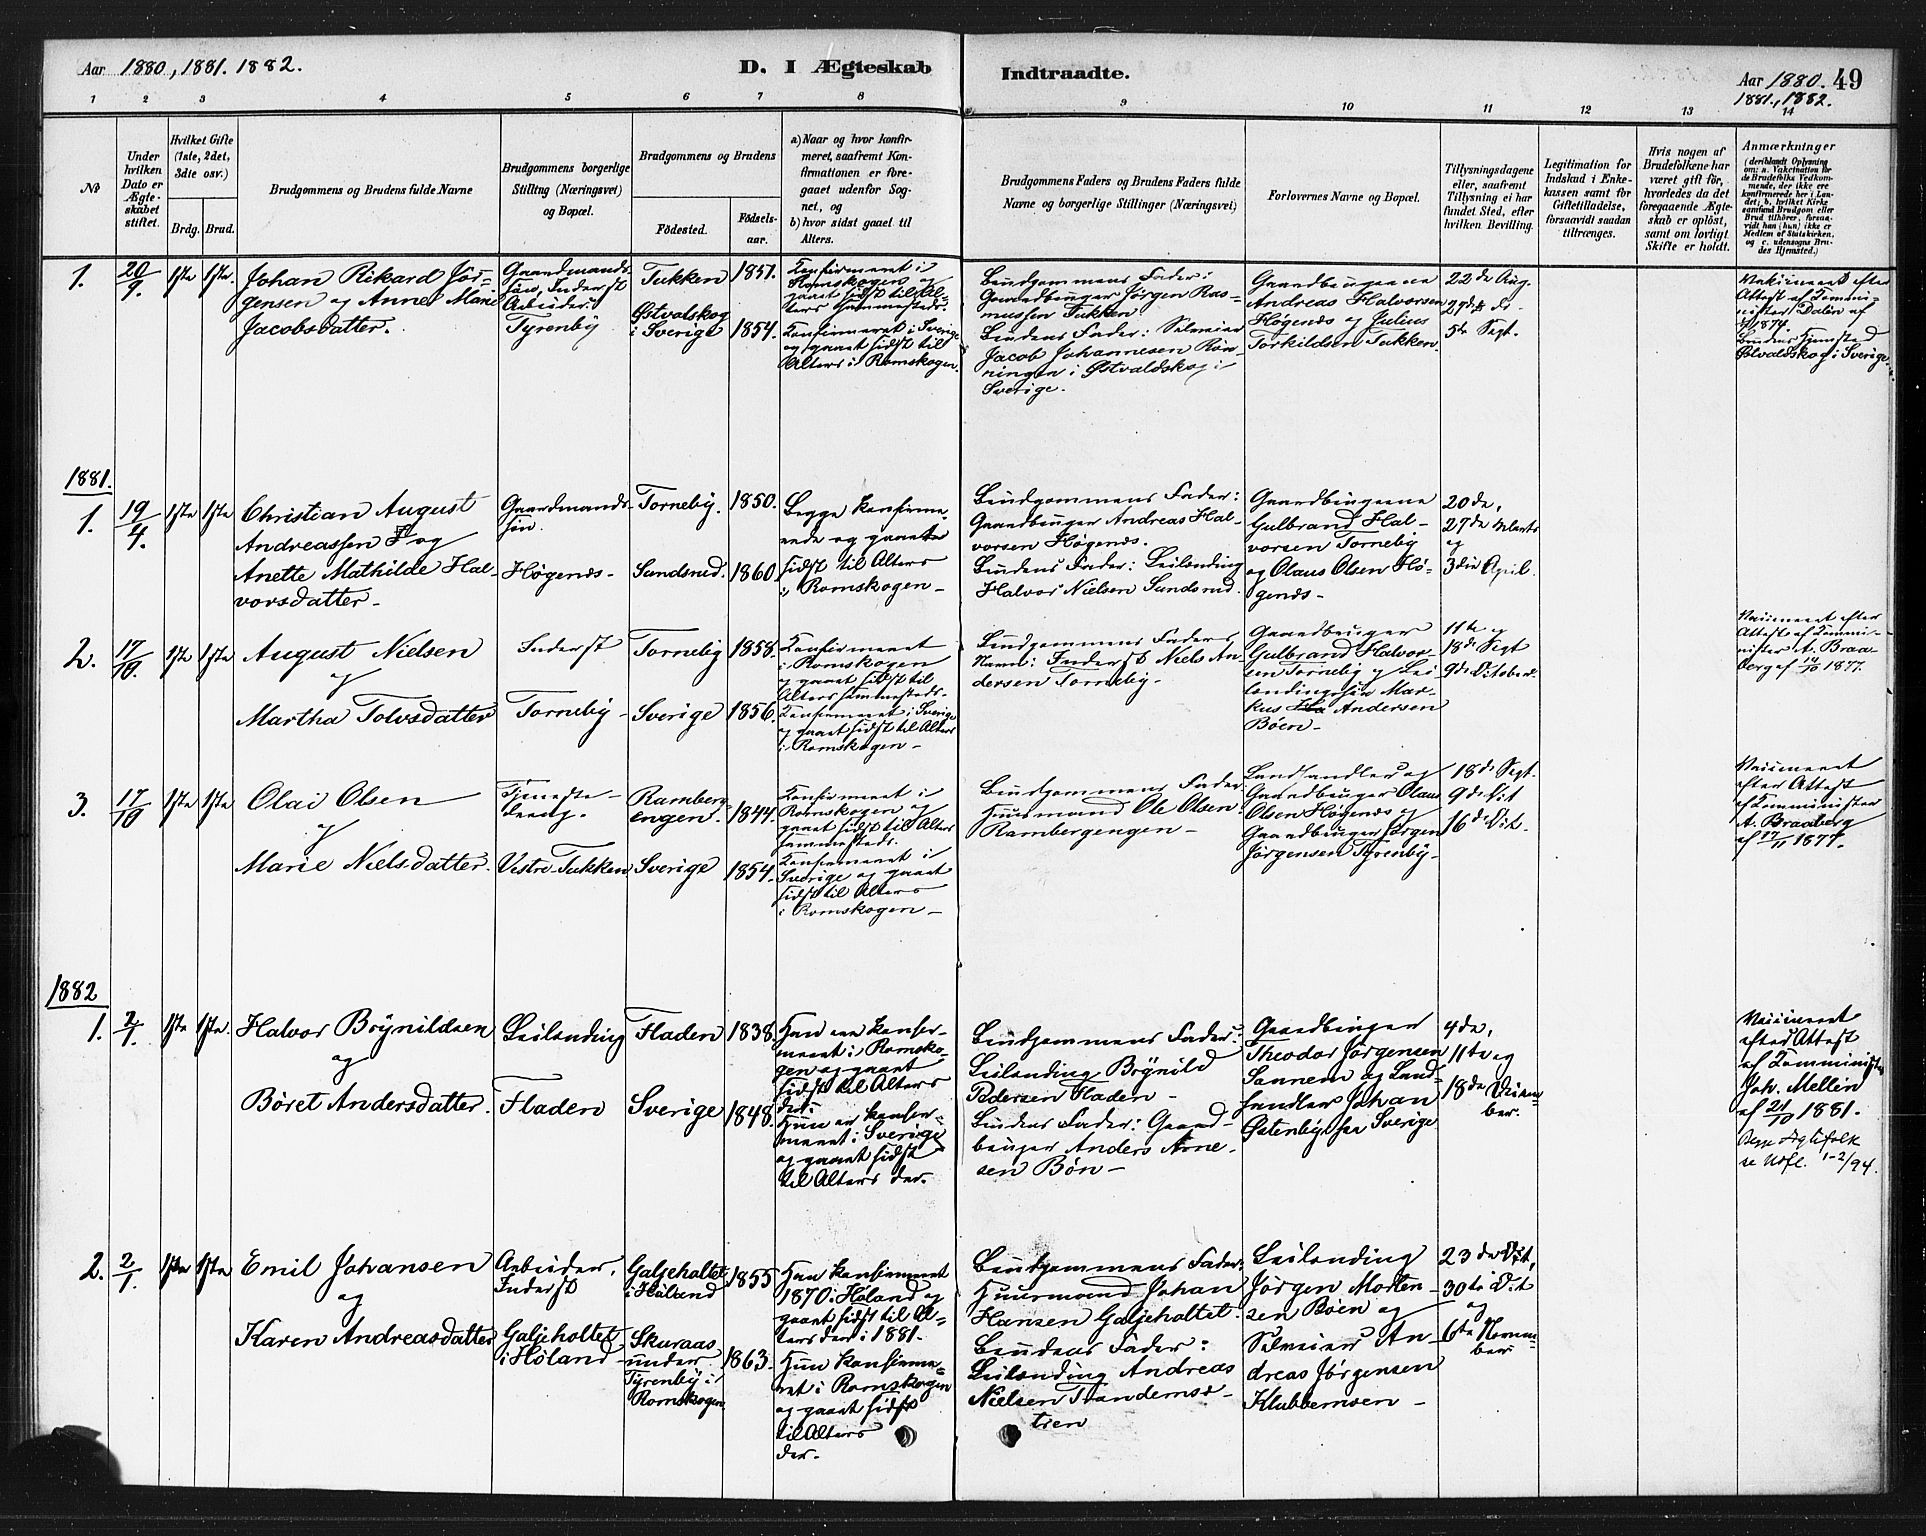 Aar 1880, 1881. 1882.
D. I Ægteskab
Indtraadte.
Aar 1880. 49
1881, 1882.
1 2 3 4 5 6 7 8
9 10 11 12 13 14
No
Under
hvilken
Dato er
Ægte-
skabet
stiftet.
Hvilket Gifte
(1ste, 2det,
3die osv.)
Brdg. Brud.
Brudgommens og Brudens fulde Navne
Brudgommens borgerlige
Stilling (Næringsvei)
og Bopæl.
Brudgommens og Brudens
Fødested.
Fødsels-
aar.
a) Naar og hvor konfir-
meret, saafremt Kon-
firmationen er fore-
gaaet udenfor Sog-
net, og
b) hvor sidst gaaet til
Alters.
Brudgommens Faders og Brudens Faders fulde
Navne og borgerlige Stillinger (Næringsvei)
Forlovernes Navne og Bopæl.
Tillysningsdagene
eller, saafremt
Tillysning ei har
fundet Sted, efter
hvilken Bevilling.
Legitimation for
Indskud i Enke-
kassen samt for
Giftetilladelse,
forsaavidt saadan
tiltrænges.
Hvis nogen af
Brudefolkene har
været gift før,
hvorledes da det
foregaaende Ægte-
skab er opløst,
samt om lovligt
Skifte er holdt.
Anmærkninger
(deriblandt Oplysning
om: a. Vakcination for
de Brudefolks Vedkom-
mende, der ikke ere
konfirmerede her i Lan-
det; b. hvilket Kirke-
samfund Brudgom eller
Brud tilhører, forsaa-
vidt han (hun) ikke er
Medlem af Statskirken,
og c. udensogns Bru-
des Hjemsted.)
1. 20/9. 1ste 1ste.
Johan Rikard Jör-
gensen og Anne Marie
Jacobsdatter.
Gaardmands-
søn, Inderst
Arbeider
Tyrenby
Tukken 1851.
Østvalskog
i Sverige 1854.
Konfirmeret i
Romskogen og
gaaet sidst til Al-
ters sammesteds.
Konfirmeret i Sverige
og gaaet sidst til
Alters i Romskogen.
Brudgommens Fader:
Gaardbruger Jörgen Ras-
mussen Tukken
Brudens Fader: Selveier
Jacob Johannesen Rön-
ningen i Østvaldskog i
Sverige.
Gaardbrugerne
Andreas Halvorsen
Høgenæs og Julius
Torkildsen Tukken.
22de Aug.
29de do
5te Sept.
Vakcineret efter
Attest af Kommi-
nister Dalin af
1874.
Brudens Hjemsted
Østvaldskog i Sverige.
1881.
1. 19/4. 1ste 1ste
Christian August
Andreassen og
Anette Mathilde Hal-
vorsdatter-
Gaardmands-
søn.
Høgenæs-
Torneby. 1850.
Sundsrud. 1860
Begge konfirme-
rede og gaaede
sidst til Alters
i Romskogen-
Brudgommens Fader:
Gaardbruger Andreas Hal-
vorsen Høgenæs.
Brudens Fader: Leilending
Halvor Nielsen Sundsrud.
Gaardbrugerne
Gulbrand Hal-
vorsen Torneby
og Olaus Olsen Hø-
genæs-
20de,
27de Marts
og
3die April.
2. 17/10. 1ste 1ste
August Nielsen
og
Martha Tolvsdatter
Inderst
Torneby-
Torneby 1858.
Sverige 1856.
Konfirmeret
i Romskogen
og gaaet sidst til
Alters sammesteds.
Konfirmeret i Sverige
og gaaet sidst til Alters
i Romskogen-
Brudgommens Faders
Navn: Inderst Niels An-
dersen Torneby-
Gaardbruger
Gulbrand Halvor-
sen Torneby og Lei-
lendingssøn Mar-
kus Andersen
Böen-
11te og
18de Sept
9de October.
Vaccineret efter
Attest af Kommi-
nister A. Braa-
berg af 14/10 1877.
3. 17/10 1ste 1ste
Olai Olsen
og
Marie Nielsdatter.
Tjeneste-
dreng.
Vestre Tukken
Ramberg-
engen. 1844.
Sverige 1854.
Konfirmeret i
Romskogen og
gaaet sidst til Alters
sammesteds.
Konfirmeret i
Sverige og gaaet
sidst til Alters
i Romskogen-
Brudgommens Fader:
Huusmand Ole Olsen
Rambergengen-
Landhandler og
Gaardbruger Olaus
Olsen Høgenæs og
Gaardbruger Jörgen
Jörgensen Tyrenby-
18de Sept.
9de Oct
16de Oct.
Vaccineret
efter Attest
af Komminister
A. Braaberg
af 17/11 1877.
1882
1. 2/1. 1ste 1ste.
Halvor Brynildsen
og
Böret Andersdatter.
Leilending
Fladen
Fladen 1838.
Sverige 1848.
Han era konfir-
meret i Romsko-
gen og gaaet
sidst til Alters
der.
Hun er konfir-
meret i Sverige
og gaaet sidst
til Alters der.
Brudgommens Fader:
Leilending Brynild
Pedersen Fladen-
Brudens Fader: Gaard-
bruger Anders Arne-
sen Bön-
Gaardbruger
Theodor Jörgensen
Sannem og Land-
handler Johan
Østenby fra Sverige
4de,
11te og
18de Decem-
ber.
Vaccineret
efter Attest
af Komminister
Joh. Mellin
af 21/10 1881.
se Udfl. 1-2/94.
2. 2/1. 1ste 1ste
Emil Johansen
og
Karen Andreasdatter
Arbeider,
Inderst
Galjeholtet
i Høland-
Galjeholtet
i Høland 1855
Skuraas
under
Tyrenby i
Romskogen 1863.
Han konfirmeret
1870 i Høland og
gaaet sidst til Al-
ters der i 1881.
Hun konfirme-
ret i Romskogen
og gaaet sidst
til Alters
der.
Brudgommens Fader:
Huusmand Johan
Hansen Galjeholtet.
Brudens Fader:
Leilending Andreas
Nielsen Trandemsæ-
tren
Leilending
Jörgen Morten-
sen Böen og
Selveier An-
dreas Jörgensen
Klubbemoen-
23de Oct,
30te Oct
og
6te Novem-
ber.